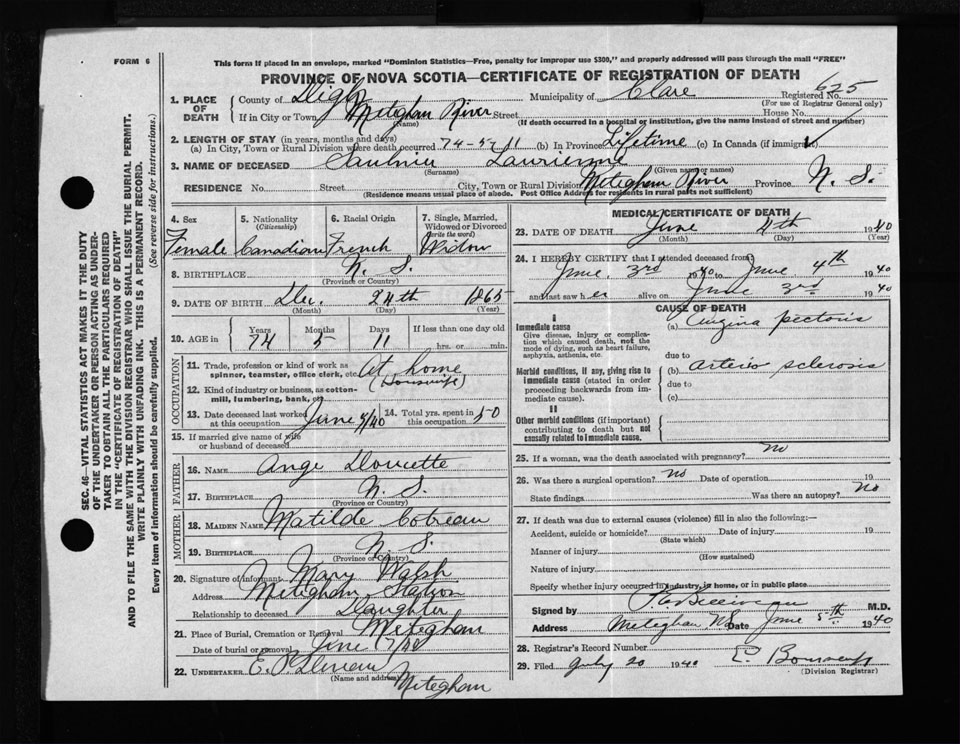 FORM 6
This form if placed in an envelope, marked "Dominion Statistics—Free, penalty for improper use $300," and properly addressed will pass through the mail "FREE"
PROVINCE OF NOVA SCOTIA—CERTIFICATE OF REGISTRATION OF DEATH
SEC. 46—VITAL STATISTICS ACT MAKES IT THE DUTY
OF THE UNDERTAKER OR PERSON ACTING AS UNDER-
TAKER TO OBTAIN ALL THE PARTICULARS REQUIRED
IN THE "CERTIFICATE OF REGISTRATION OF DEATH"
AND TO FILE THE SAME WITH THE DIVISION REGISTRAR WHO SHALL ISSUE THE BURIAL PERMIT.
WRITE PLAINLY WITH UNFADING INK. THIS IS A PERMANENT RECORD.
Every item of information should be carefully supplied. (See reverse side for instructions.)
1. PLACE OF DEATH
County of Digby Municipality of Clare Registered No. 625
(For use of Registrar General only)
If in City or Town Meteghan River Street House No.
(Name) (If death occurred in a hospital or institution, give the name instead of street and number)
2. LENGTH OF STAY (in years, months and days)
(a) In City, Town or Rural Division where death occurred 74-5-11 (b) In Province Lifetime (c) In Canada (if immigrant)
3. NAME OF DECEASED Saulnier
(Surname) (Given name or names)
RESIDENCE No. Street City, Town or Rural Division Meteghan River Province N. S.
(Residence means usual place of abode. Post Office Address for residents in rural parts not sufficient)
4. Sex
Female
5. Nationality
(Citizenship)
Canadian
6. Racial Origin
French
7. Single, Married,
Widowed or Divorced
(write the word)
Widow
8. BIRTHPLACE N. S.
(Province or Country)
9. DATE OF BIRTH Dec. 24th 1865
(Month) (Day) (Year)
10. AGE in
Years Months Days If less than one day old
74 5 11 hrs. or min.
OCCUPATION
11. Trade, profession or kind of work as
spinner, teamster, office clerk, etc. At home
(Housewife)
12. Kind of industry or business, as cotton-
mill, lumbering, bank, etc.
13. Date deceased last worked
at this occupation June 4/40
14. Total yrs. spent in
this occupation 50
15. If married give name of wife
or husband of deceased
FATHER
16. NAME Ange Doucette
17. BIRTHPLACE N. S.
(Province or Country)
MOTHER
18. MAIDEN NAME Matilde Cotreau
19. BIRTHPLACE N. S.
(Province or Country)
20. Signature of informant Mary Walsh
Address Meteghan Station
Relationship to deceased Daughter
21. Place of Burial, Cremation or Removal Meteghan
Date of burial or removal June 7/40
22. UNDERTAKER E. P.
(Name and address)
Meteghan
MEDICAL CERTIFICATE OF DEATH
23. DATE OF DEATH June 4th 1940
(Month) (Day) (Year)
24. I HEREBY CERTIFY that I attended deceased from
June 3rd 1940 to June 4th 1940
and last saw her alive on June 3rd 1940
CAUSE OF DEATH
I
Immediate cause
Give disease, injury or complica-
tion which caused death, not the
mode of dying, such as heart failure,
asphyxia, asthenia, etc.
(a) Angina pectoris
due to
Morbid conditions, if any, giving rise to
immediate cause (stated in order
proceeding backwards from im-
mediate cause).
(b) arterio sclerosis
due to
(c)
II
Other morbid conditions (if important)
contributing to death but not
causally related to immediate cause.
25. If a woman, was the death associated with pregnancy? no
26. Was there a surgical operation? no Date of operation 19
State findings Was there an autopsy? no
27. If death was due to external causes (violence) fill in also the following:—
Accident, suicide or homicide? Date of injury 19
(State which)
Manner of injury
(How sustained)
Nature of injury
Specify whether injury occurred in industry, in home, or in public place
Signed by P. E. Belliveau M.D.
Address Meteghan N.S. Date June 5th 1940
28. Registrar's Record Number
29. Filed July 20 1940
(Division Registrar)